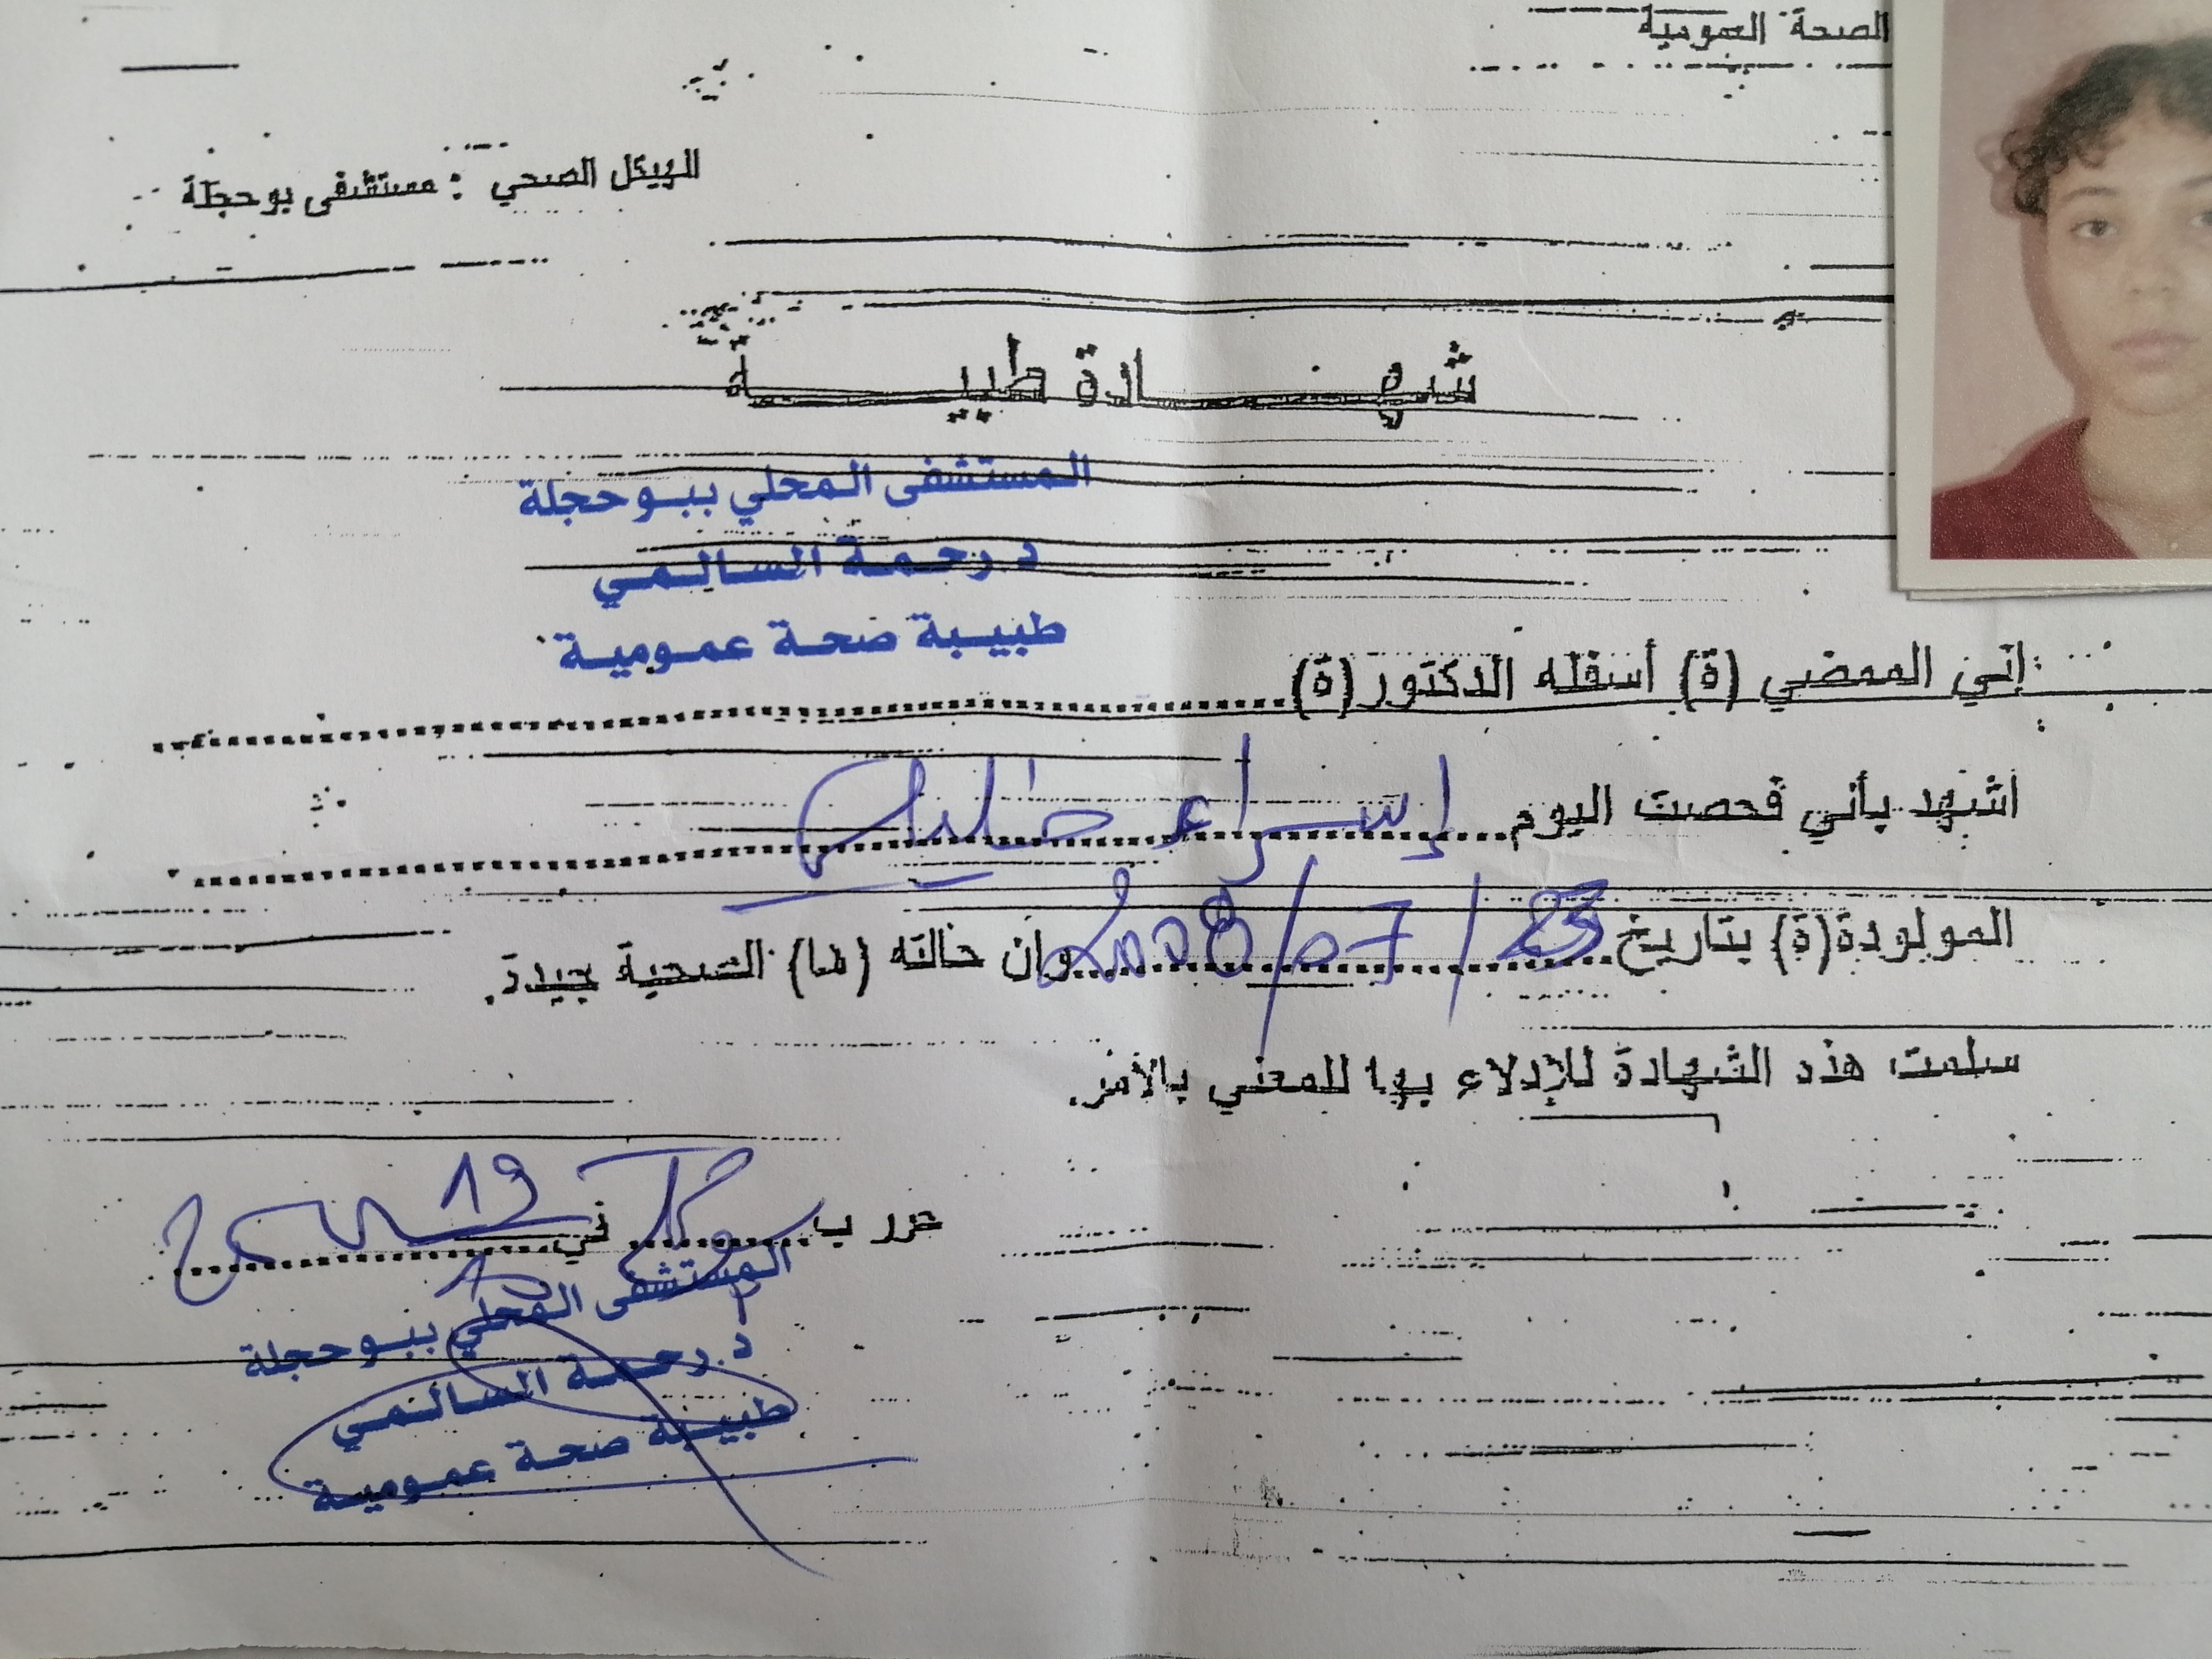 الصحة العمومية
الهيكل الصحي : مستشفى بوحجلة
شهـــــادة طبيـــــة
المستشفى المحلي ببوحجلة
د.رحمة السالمي
طبيبة صحة عمومية
إني الممضي (ة) أسفله الدكتور(ة)
اشهد بأني فحصت اليوم إسراء خليل
المولودة(ة) بتاريخ 23/07/2008 وأن حالته (ها) الصحية جيدة.
سلمت هذه الشهادة للإدلاء بها للمعني بالأمر.
حرر ب في 19
المستشفى المحلي ببوحجلة
د.رحمة السالمي
طبيبة صحة عمومية